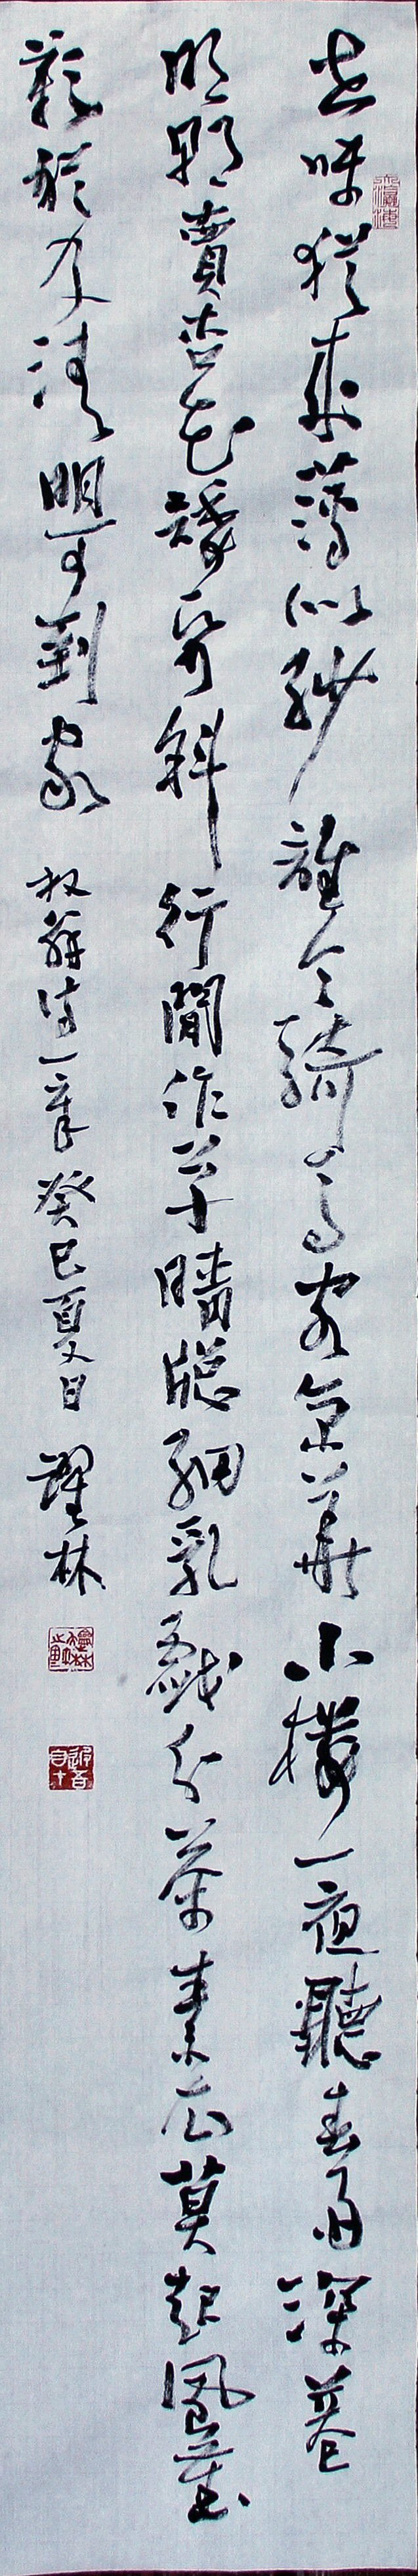 世味從來薄似紗誰令騎馬客京華小樓一夜聽春雨深巷
明朝賣杏花矮紙斜行閒作草晴窗細乳戲分茶素衣莫起風塵
歎猶及清明可到家 放翁詩一章 癸巳夏日 躍林